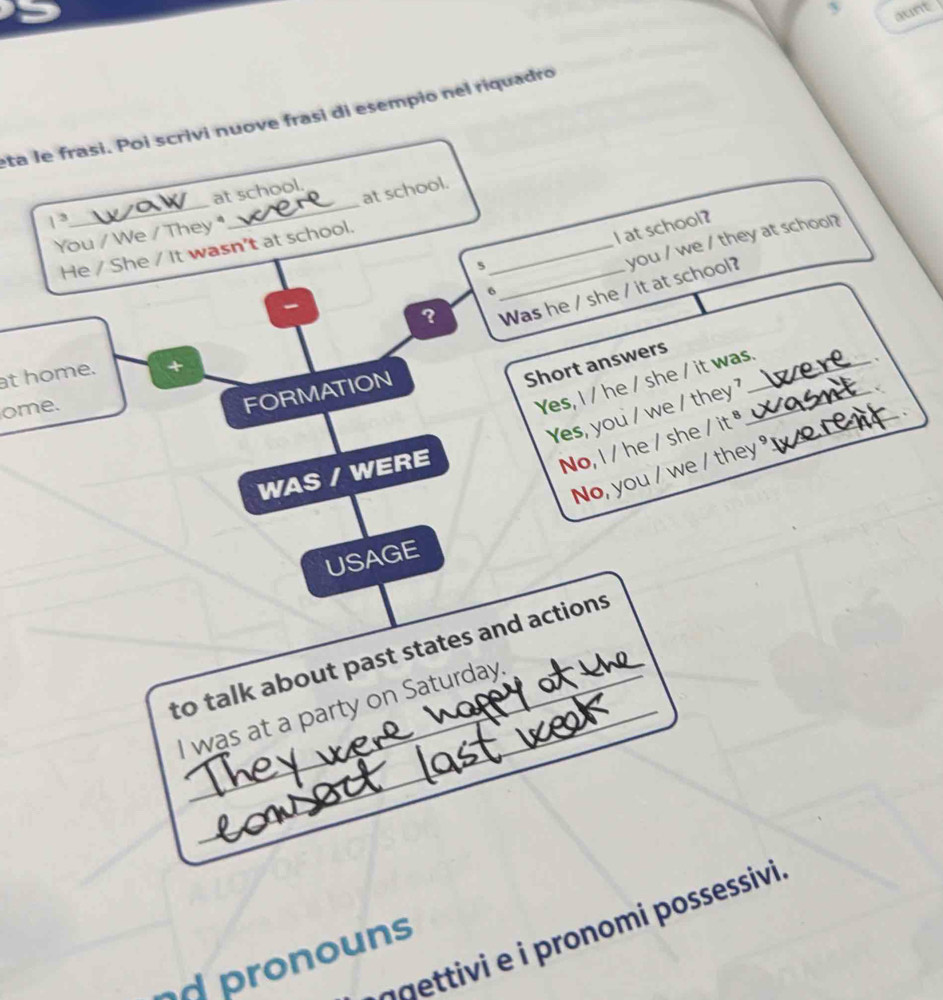 eta le frasi. Poi scrivi nuove frasi di esempio nel riquadro
aunt
I ³ waw at school.
You / We / They ⁴ were at school.
He / She / It wasn't at school.
–
⁵ I at school?
⁶ you / we / they at school?
Was he / she / it at school?
?
at home.
ome.
+
FORMATION
Short answers
Yes, I / he / she / it was.
Yes, you / we / they ⁷ were.
No, I / he / she / it ⁸ wasn't.
No, you / we / they ⁹ weren't.
WAS / WERE
USAGE
to talk about past states and actions
I was at a party on Saturday.
They were happy at the
consect last week
nd pronouns
aggettivi e i pronomi possessivi.